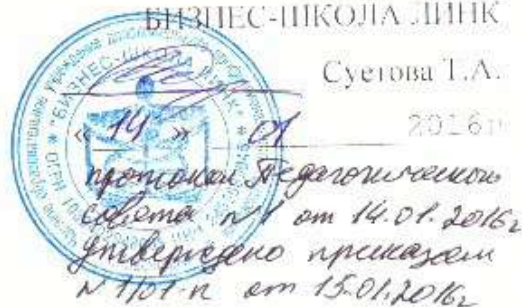 БИЗНЕС-ШКОЛА ЛИНК
Суетова Т.А.
« 14 » 01 2016г
протокол Педагогического
совета №1 от 14.01.2016г
утверждено приказом
№ 1/01-п от 15.01.2016г
"БИЗНЕС-ШКОЛА ЛИНК"